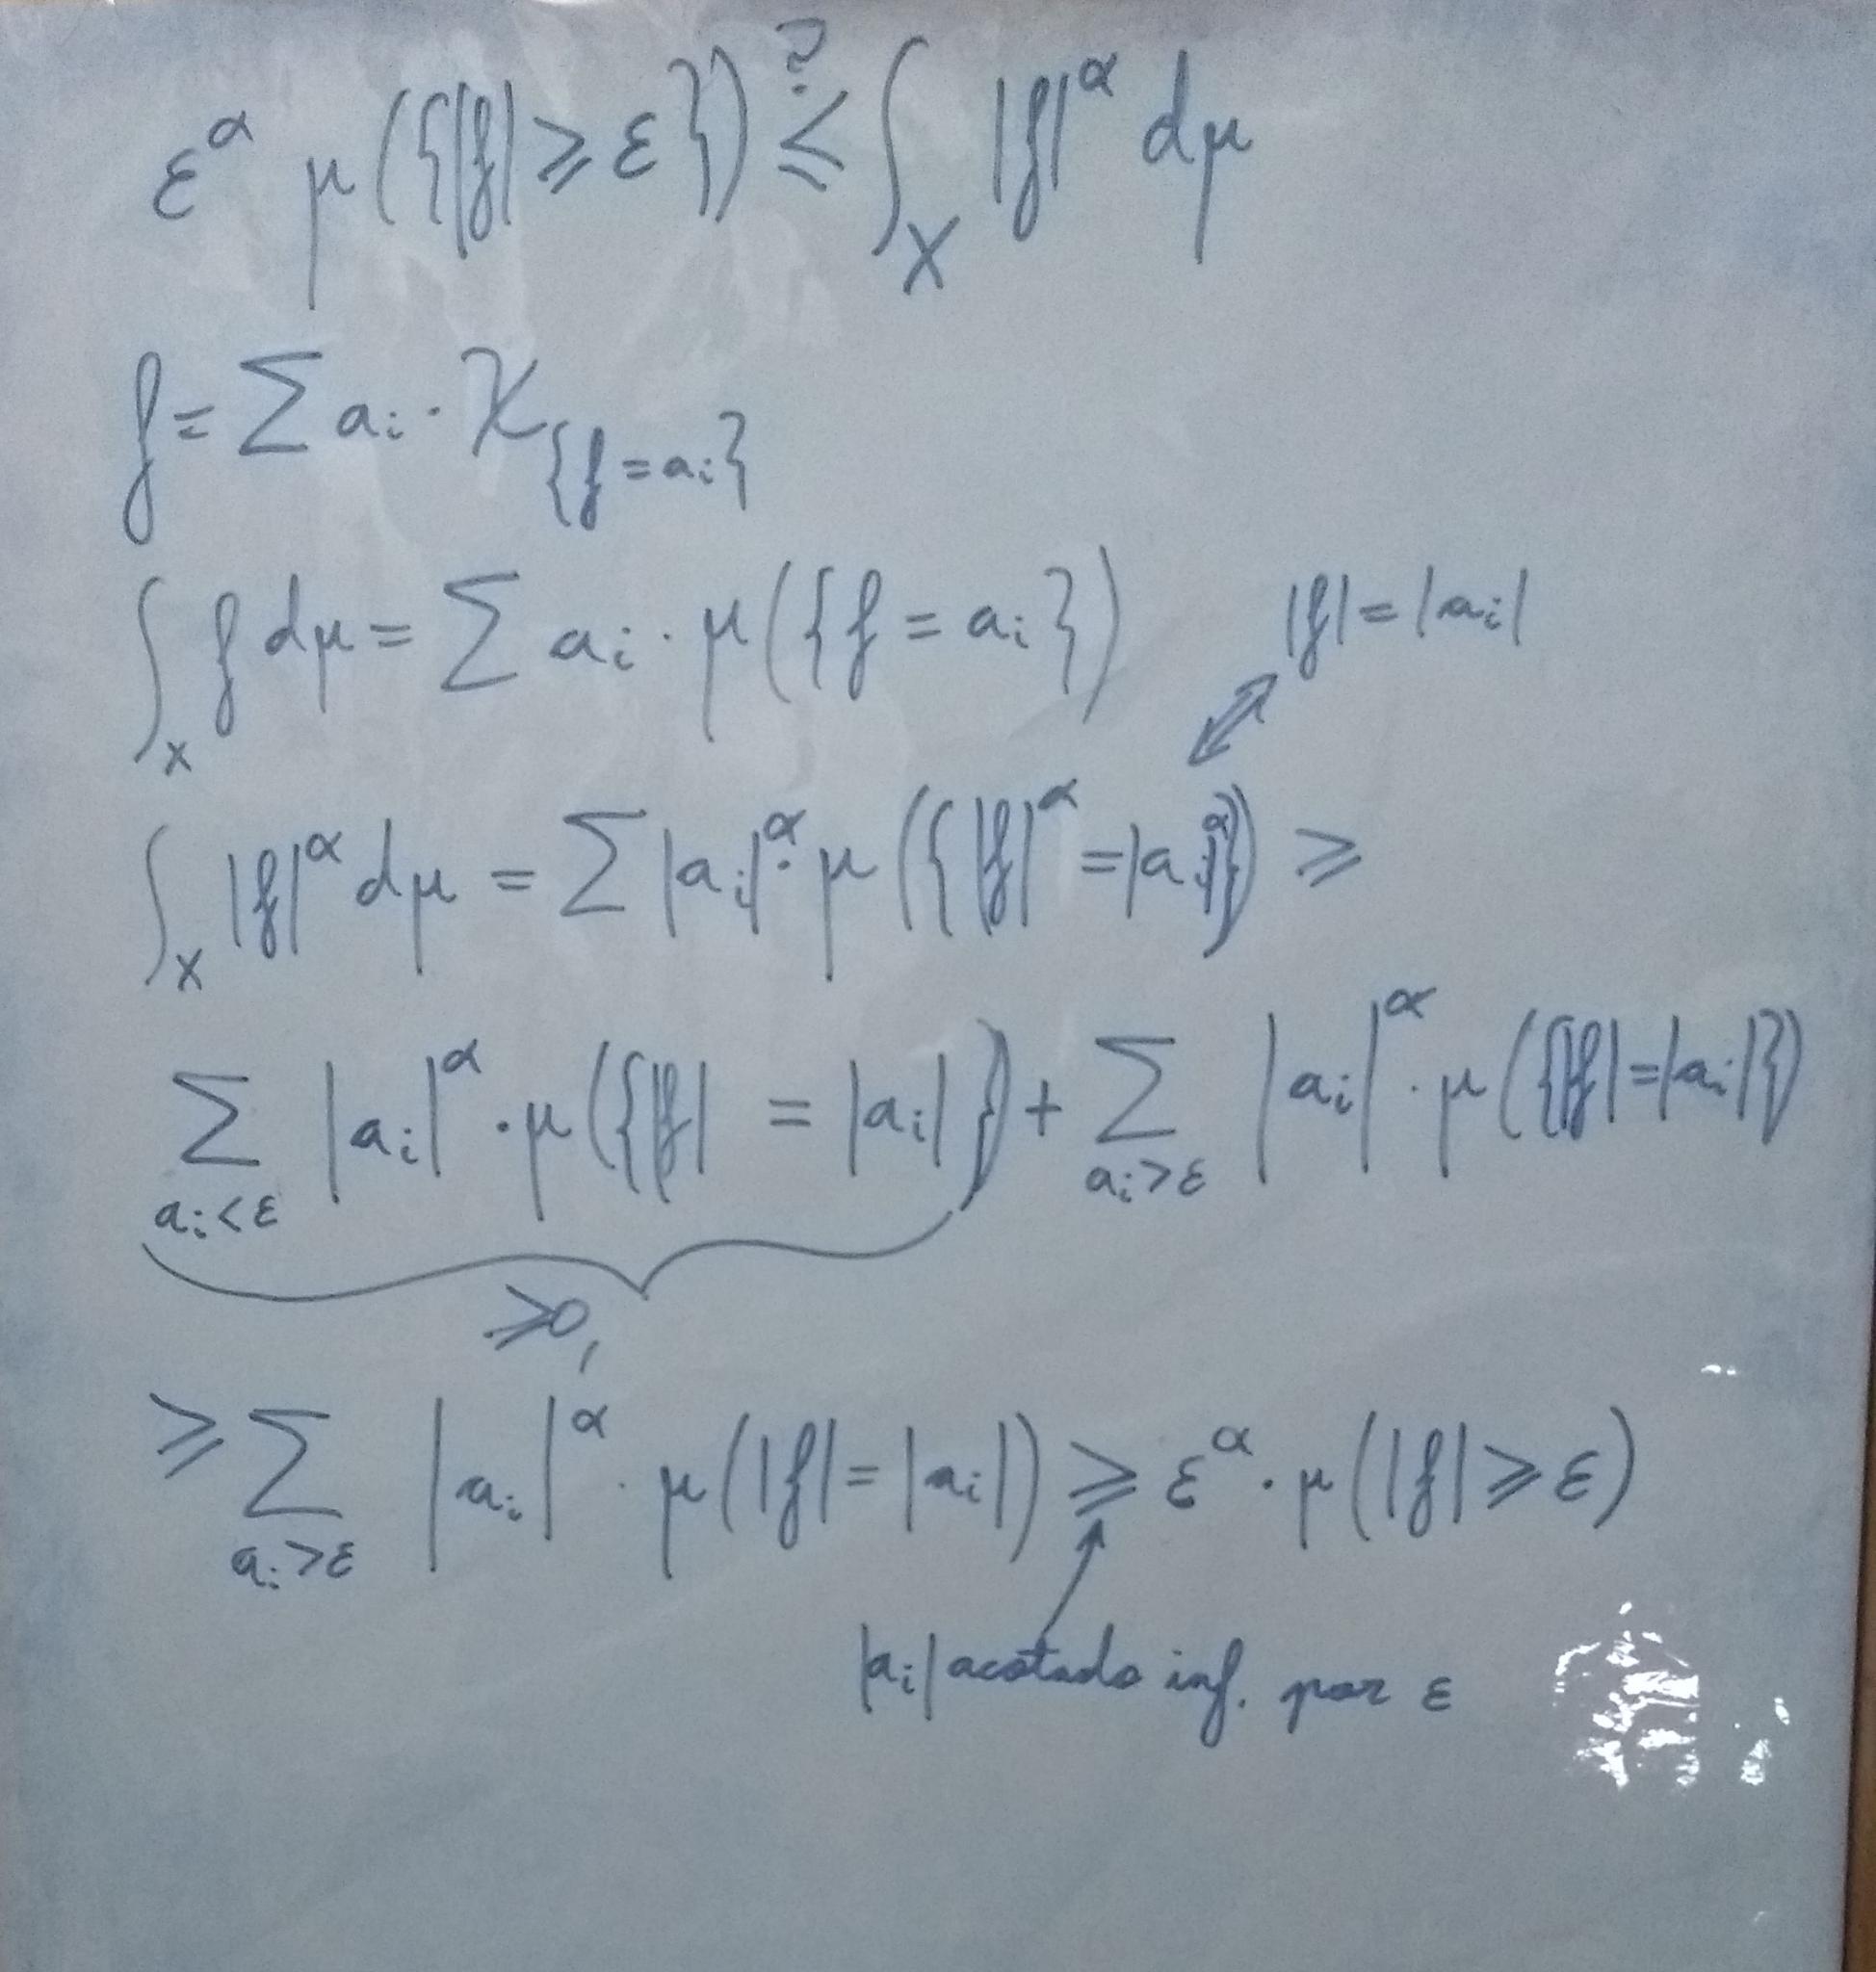 ε^α μ({|f| ⩾ ε}) ≤^? ∫_X |f|^α dμ
f = ∑ a_i · χ_{f = a_i}
∫_X f dμ = ∑ a_i · μ({f = a_i})
|f| = |a_i|
∫_X |f|^α dμ = ∑ |a_i|^α · μ({|f|^α = |a_i|^α}) ⩾
∑_{a_i < ε} |a_i|^α · μ({|f| = |a_i|}) + ∑_{a_i > ε} |a_i|^α · μ({|f| = |a_i|})
⩾ 0,
⩾ ∑_{a_i > ε} |a_i|^α · μ(|f| = |a_i|) ⩾ ε^α · μ(|f| ⩾ ε)
|a_i| acotado inf. por ε